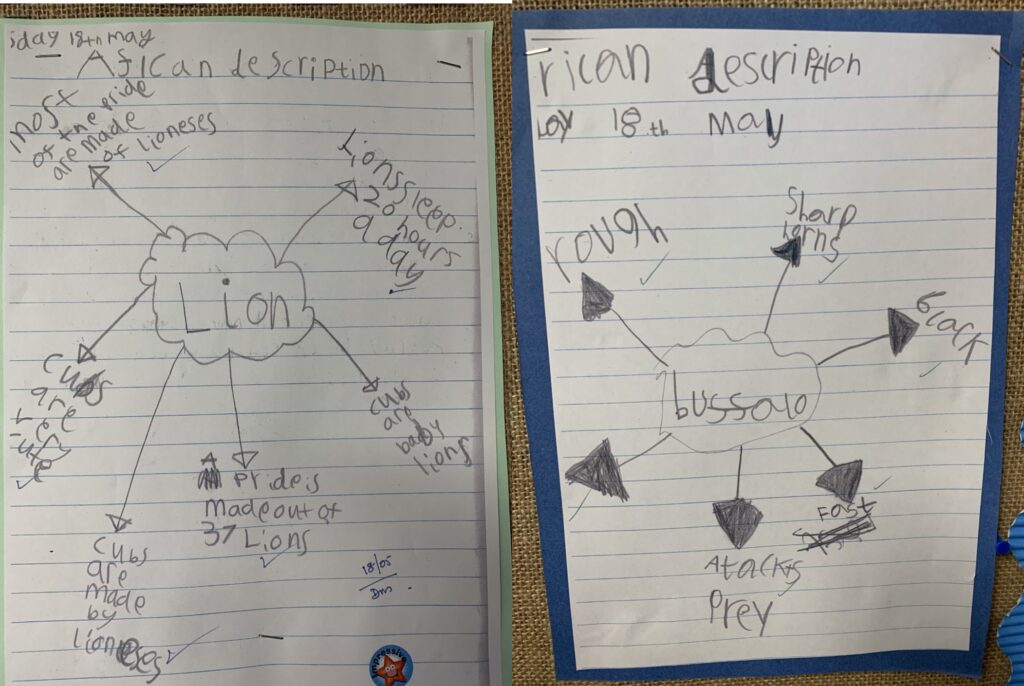 sday 18th may
Afican description
most
of the pride
are made
of lioneses
Lions sleep
20 hours
a day
Lion
cubs
are
cute
cubs
are
baby
lions
A
pride is
made out of
37 Lions
cubs
are
made
by
lioneses
18/05
impressive
rican description
18th may
rough
sharp
horns
black
bussalo
Fast
Atacks
prey